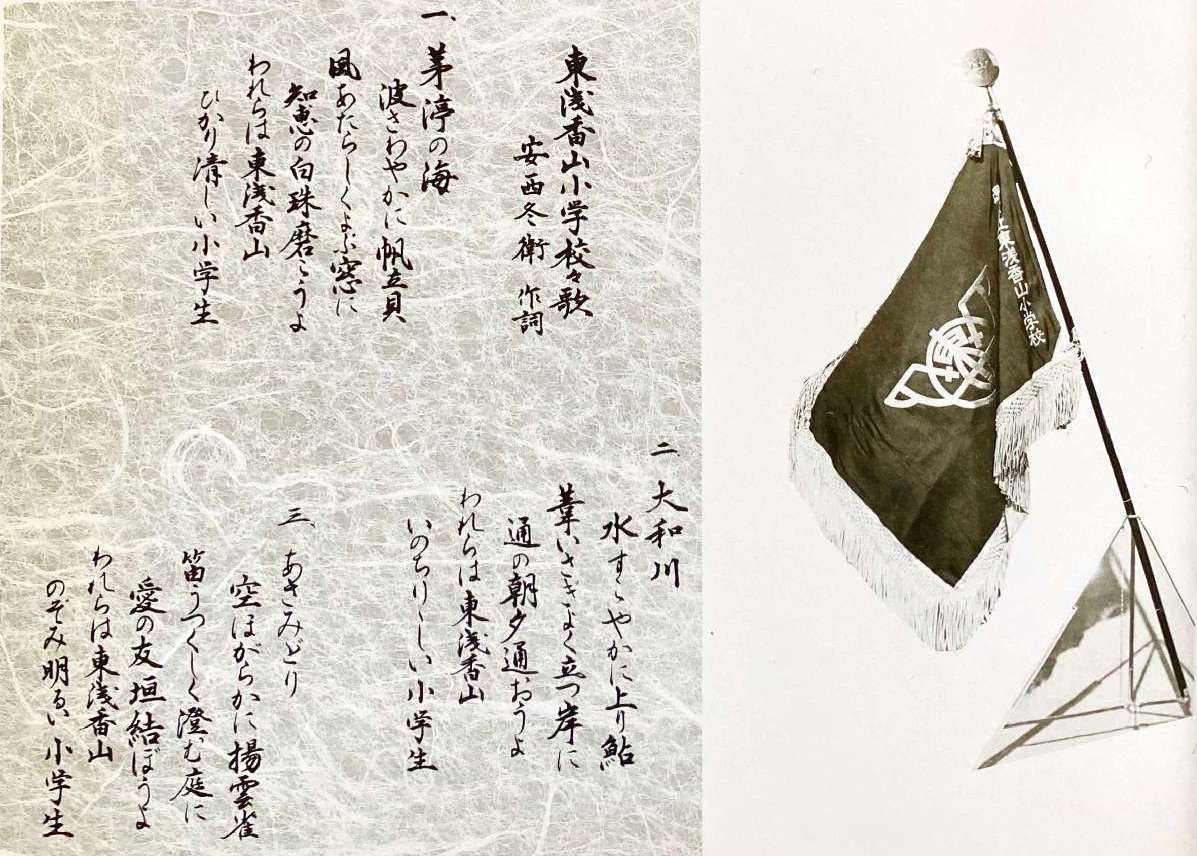 東浅香山小学校々歌
安西冬衛 作詞
一、茅渟の海
波さわやかに帆立貝
風あたらしくよぶ窓に
知恵の白珠磨こうよ
われらは東浅香山
ひかり清しい小学生
二 大和川
水すこやかに上り鮎
葦いさぎよく立つ岸に
通の朝夕通おうよ
われらは東浅香山
いのちりりしい小学生
三、あさみどり
空ほがらかに揚雲雀
笛うつくしく澄む庭に
愛の友垣結ぼうよ
われらは東浅香山
のぞみ明るい小学生
東浅香山小学校
東